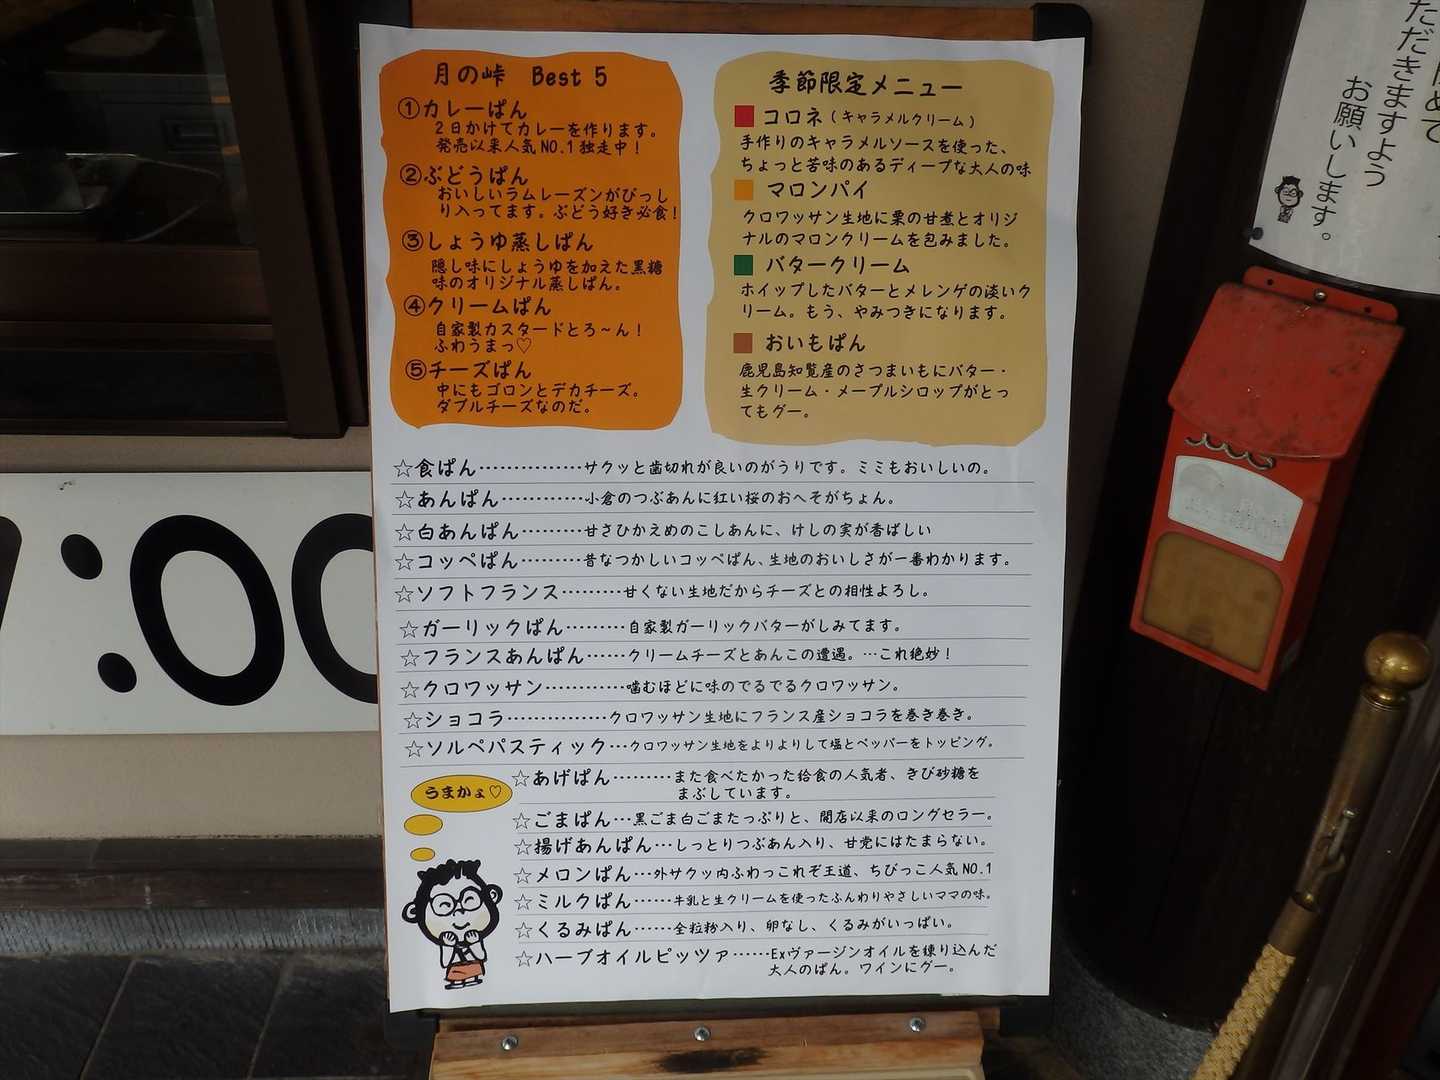 月の峠　Best 5
①カレーぱん
２日かけてカレーを作ります。
発売以来人気NO.1独走中！
②ぶどうぱん
おいしいラムレーズンがびっし
り入ってます。ぶどう好き必食！
③しょうゆ蒸しぱん
隠し味にしょうゆを加えた黒糖
味のオリジナル蒸しぱん。
④クリームぱん
自家製カスタードとろ～ん！
ふわうまっ♡
⑤チーズぱん
中にもゴロンとデカチーズ。
ダブルチーズなのだ。
季節限定メニュー
コロネ（キャラメルクリーム）
手作りのキャラメルソースを使った、
ちょっと苦味のあるディープな大人の味
マロンパイ
クロワッサン生地に栗の甘煮とオリジ
ナルのマロンクリームを包みました。
バタークリーム
ホイップしたバターとメレンゲの淡いク
リーム。もう、やみつきになります。
おいもぱん
鹿児島知覧産のさつまいもにバター・
生クリーム・メープルシロップがとっ
てもグー。
☆食ぱん……………サクッと歯切れが良いのがうりです。ミミもおいしいの。
☆あんぱん…………小倉のつぶあんに紅い桜のおへそがちょん。
☆白あんぱん………甘さひかえめのこしあんに、けしの実が香ばしい
☆コッペぱん………昔なつかしいコッペぱん、生地のおいしさが一番わかります。
☆ソフトフランス………甘くない生地だからチーズとの相性よろし。
☆ガーリックぱん………自家製ガーリックバターがしみてます。
☆フランスあんぱん……クリームチーズとあんこの遭遇。…これ絶妙！
☆クロワッサン…………噛むほどに味のでるでるクロワッサン。
☆ショコラ……………クロワッサン生地にフランス産ショコラを巻き巻き。
☆ソルペパスティック…クロワッサン生地をよりよりして塩とペッパーをトッピング。
☆あげぱん………また食べたかった給食の人気者、きび砂糖を
まぶしています。
☆ごまぱん…黒ごま白ごまたっぷりと、開店以来のロングセラー。
☆揚げあんぱん…しっとりつぶあん入り、甘党にはたまらない。
☆メロンぱん…外サクッ内ふわっこれぞ王道、ちびっこ人気NO.1
☆ミルクぱん……牛乳と生クリームを使ったふんわりやさしいママの味。
☆くるみぱん……全粒粉入り、卵なし、くるみがいっぱい。
☆ハーブオイルピッツァ……Exヴァージンオイルを練り込んだ
大人のぱん。ワインにグー。
うまかょ♡
:00
ただきますよう
お願いします。